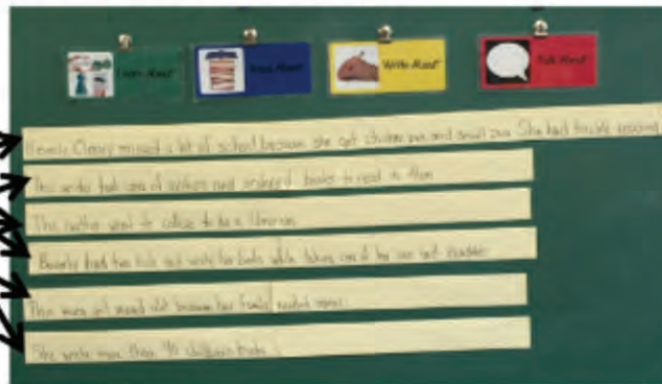 Learn About
Read About
Write About
Talk About
Beverly Cleary missed a lot of school because she got chicken pox and small pox. She had trouble reading
This writer took care of soldiers and ordered books to read to them.
This author went to college to be a librarian.
Beverly had two kids and wrote her books while taking care of her son and daughter.
This got because her family needed money.
She wrote more than children's books.